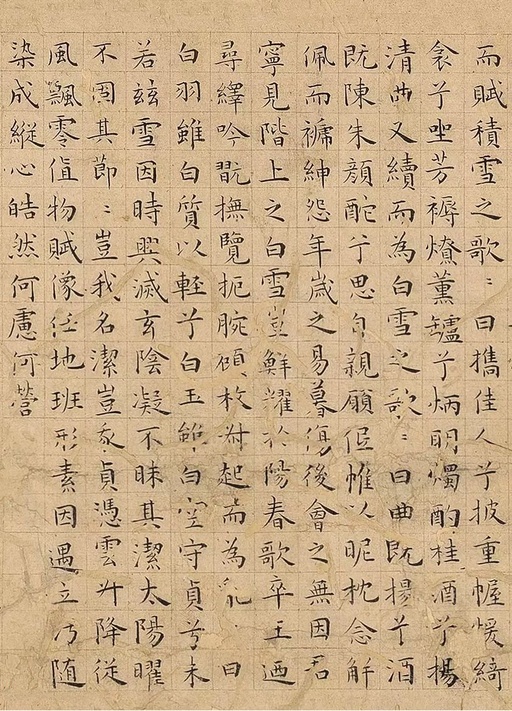 而賦積雪之歌〻曰攜佳人兮披重幄煖綺
衾兮坐芳褥燎薰鑪兮炳明燭酌桂酒兮揚
清曲又續而為白雪之歌〻曰曲既揚兮酒
既陳朱顏酡兮思自親願低帷以昵枕念解
佩而褫紳怨年歲之易暮傷後會之無因君
寧見階上之白雪豈鮮耀於陽春歌卒王迺
尋繹吟翫撫覽扼腕顧枚叔起而為亂曰
白羽雖白質以輕兮白玉雖白空守貞兮未
若茲雪因時興滅玄陰凝不昧其潔太陽曜
不固其節〻豈我名潔豈我貞憑雲升降從
風飄零值物賦像任地班形素因遇立乃随
染成縱心皓然何慮何營